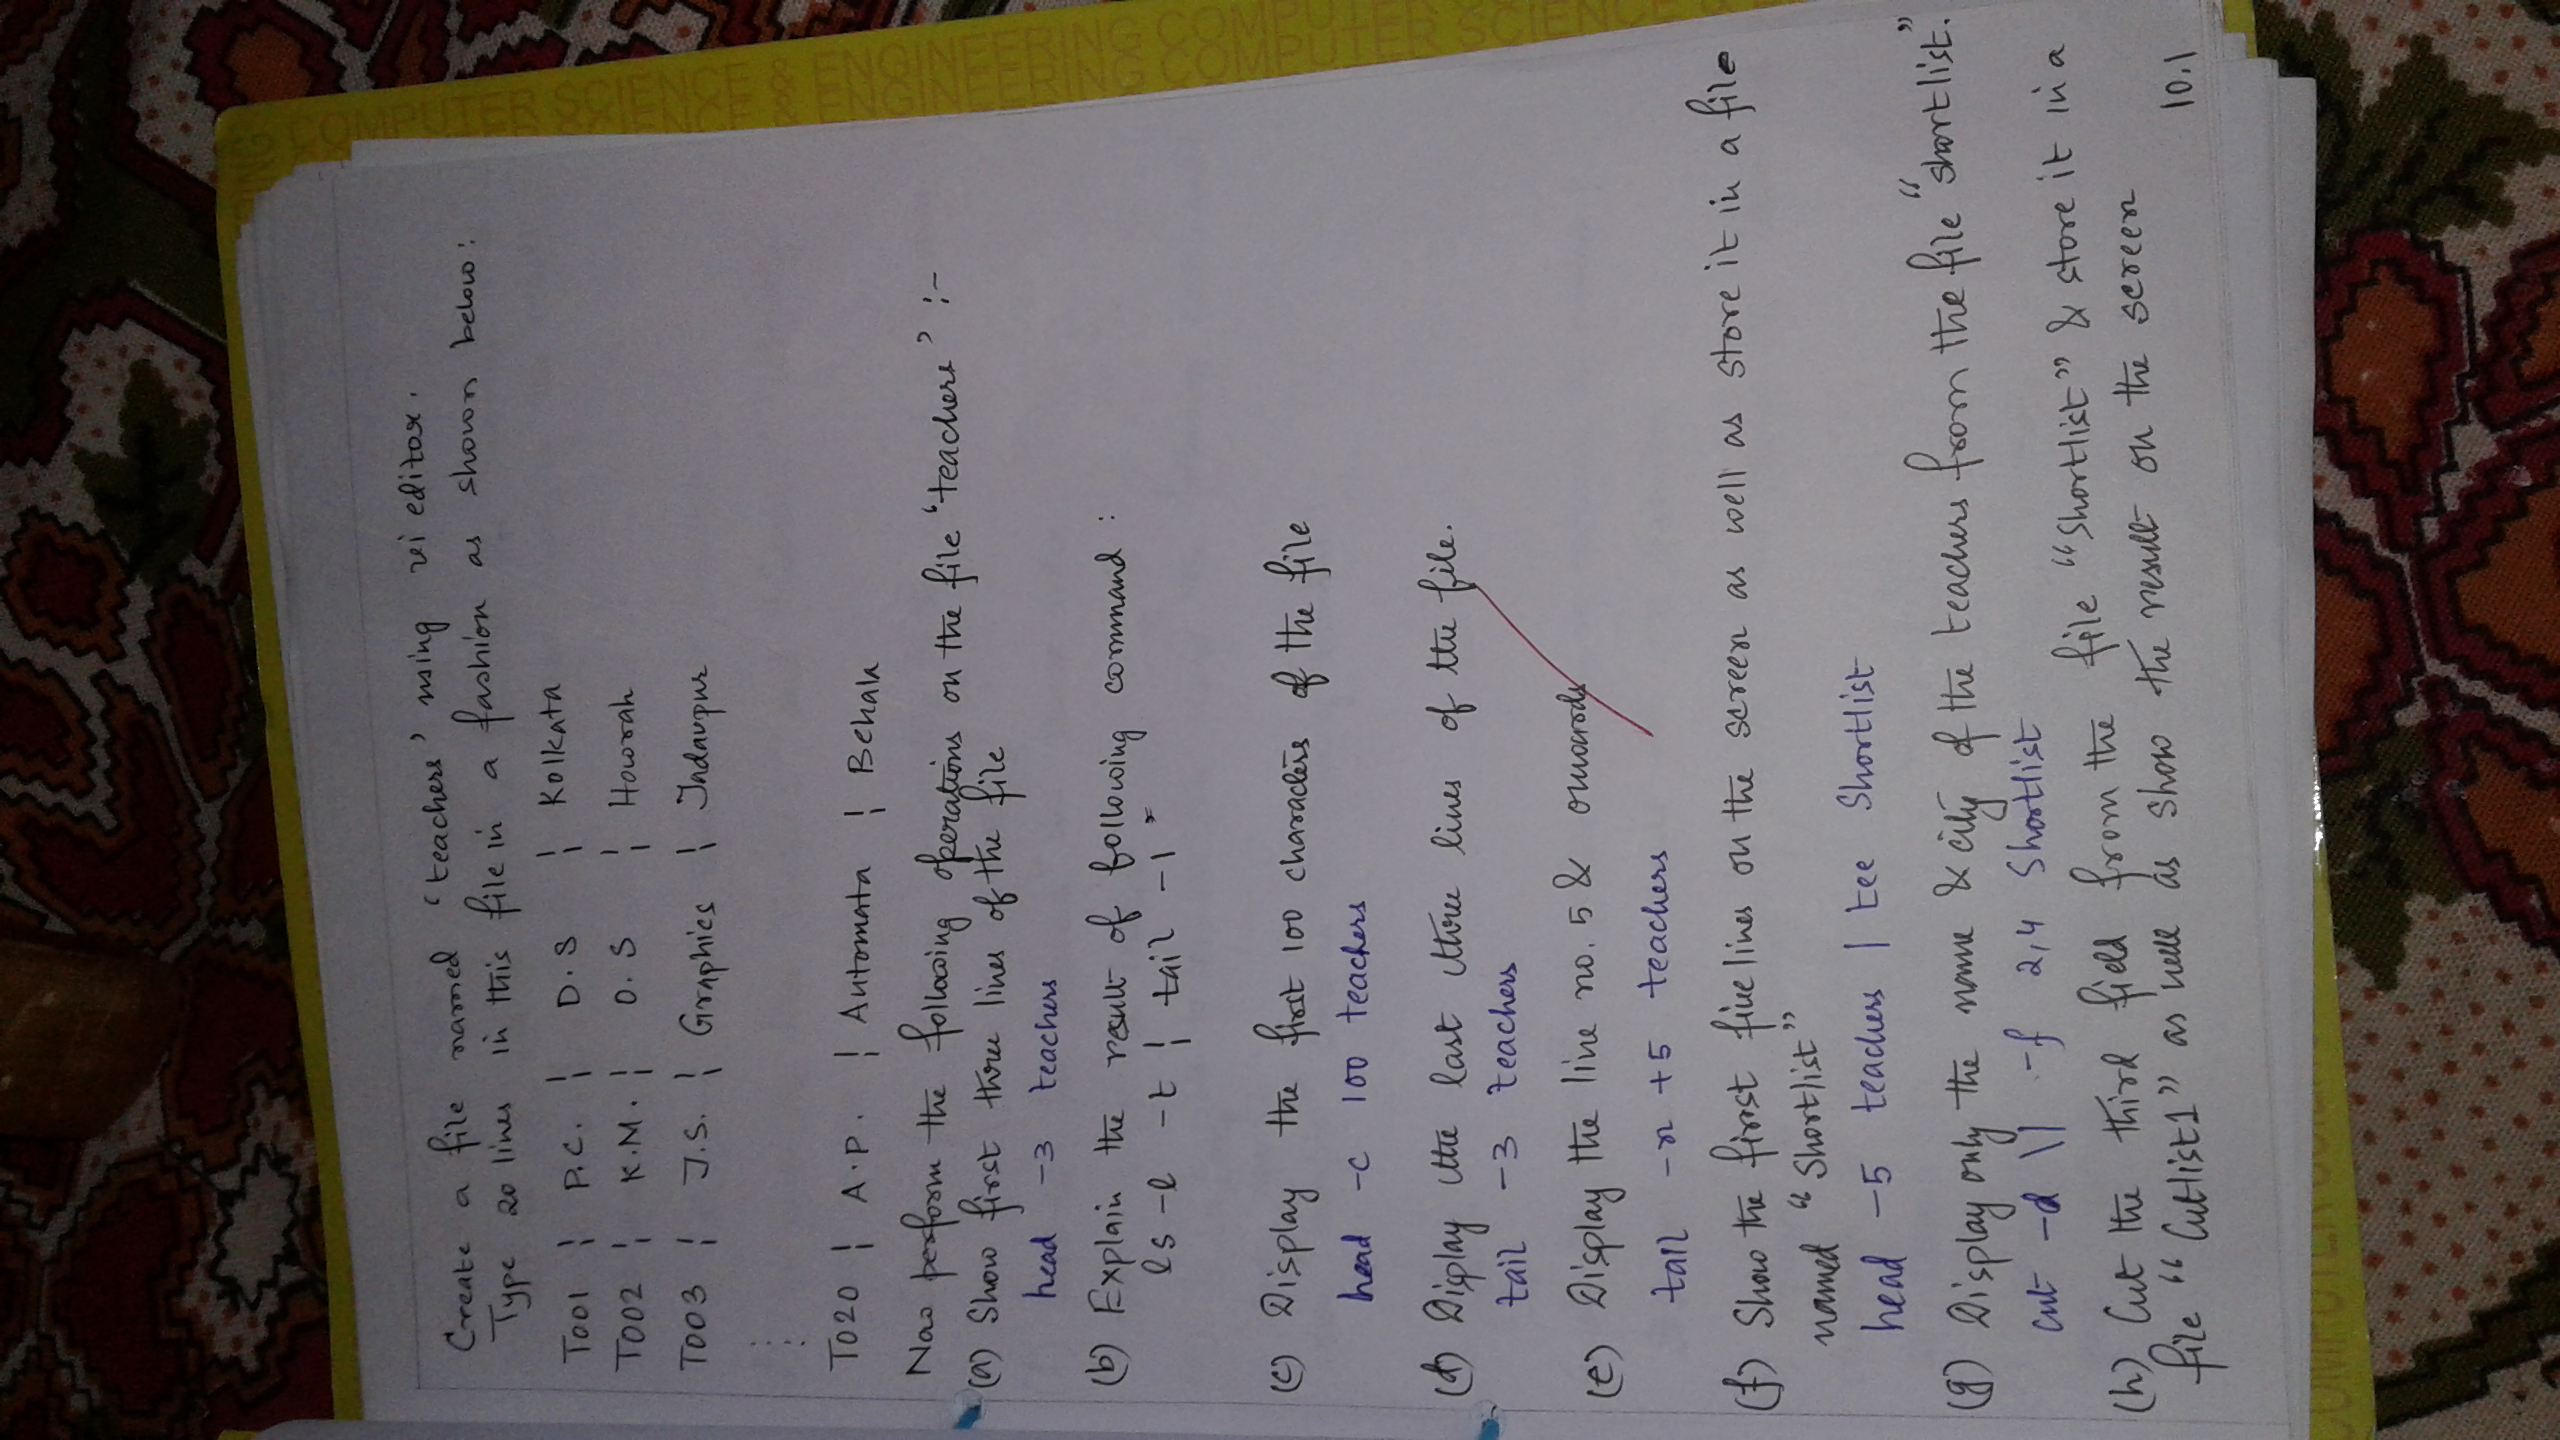 Create a file named 'teachers' using vi editor.
Type 20 lines in this file in a fashion as shown below:
T001 ¦ P.C. ¦ D.S ¦ Kolkata
T002 ¦ K.M. ¦ O.S ¦ Howrah
T003 ¦ J.S. ¦ Graphics ¦ Jadavpur
T020 ¦ A.P. ¦ Automata ¦ Behala
Now perform the following operations on the file 'teachers' :-
(a) Show first three lines of the file
head -3 teachers
(b) Explain the result of following command :
ls -l -t ¦ tail -1
(c) Display the first 100 characters of the file
head -c 100 teachers
(d) Display the last three lines of the file.
tail -3 teachers
(e) Display the line no. 5 & onwards
tail -n +5 teachers
(f) Show the first five lines on the screen as well as store it in a file
named "Shortlist"
head -5 teachers | tee Shortlist
(g) Display only the name & city of the teachers from the file "shortlist".
cut -d \| -f 2,4 Shortlist
(h) Cut the third field from the file "Shortlist" & store it in a
file "Cutlist1" as well as show the result on the screen
10.1
COMPUTER SCIENCE & ENGINEERING
COMPUTER SCIENCE & ENGINEERING